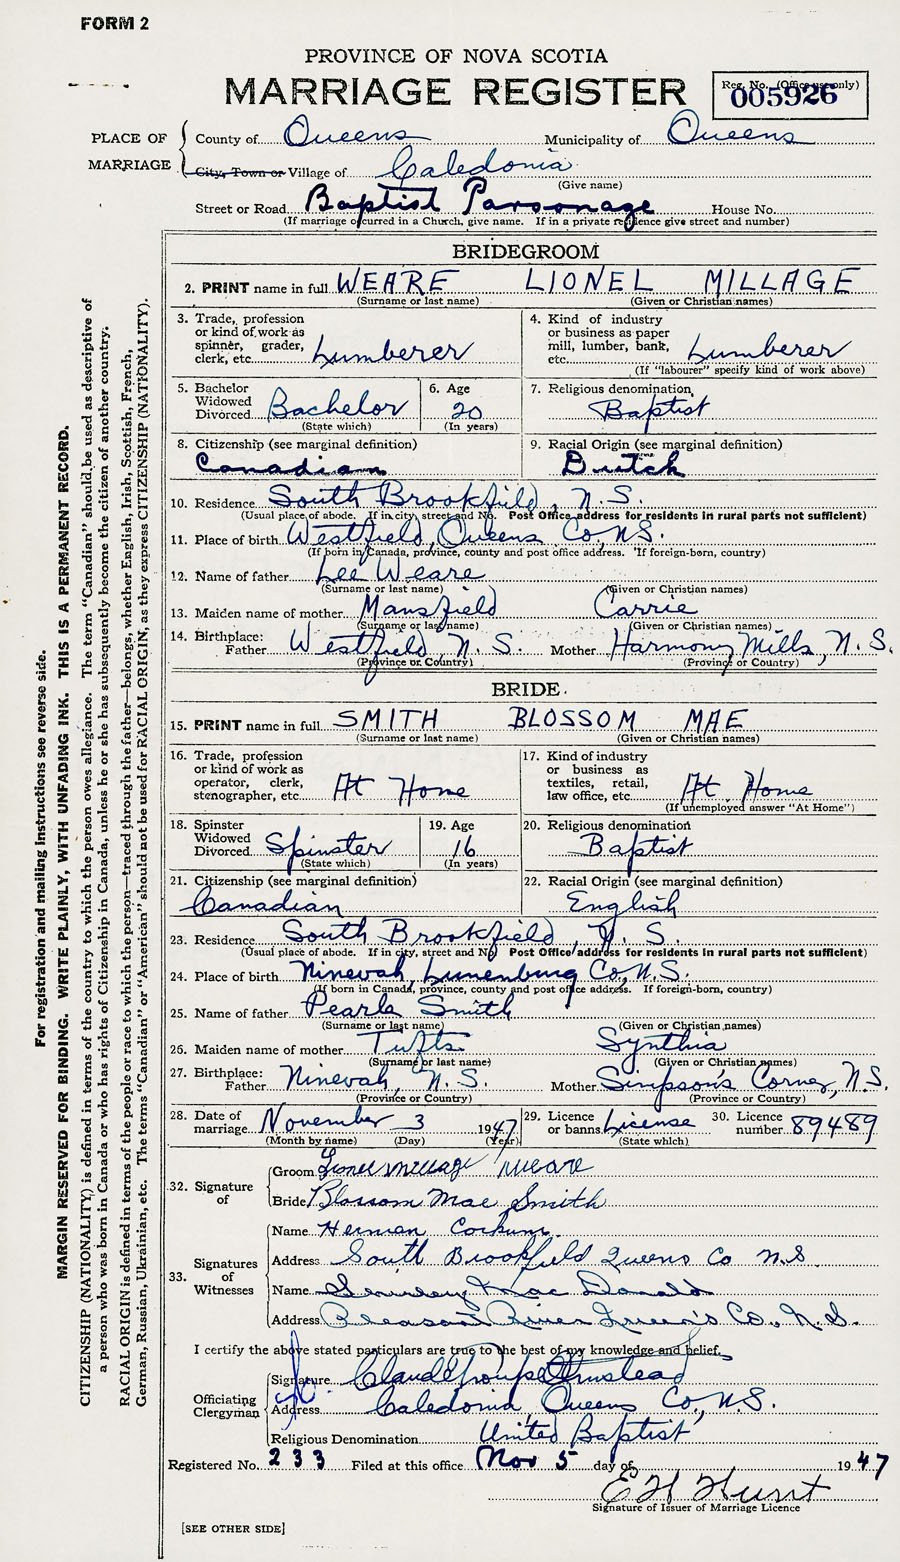 FORM 2
PROVINCE OF NOVA SCOTIA
MARRIAGE REGISTER
Reg. No. (Office use only)
005926
PLACE OF MARRIAGE
County of Queens Municipality of Queens
City, Town or Village of Caledonia
(Give name)
Street or Road Baptist Parsonage House No.
(If marriage occurred in a Church, give name. If in a private residence give street and number)
BRIDEGROOM
2. PRINT name in full WEARE LIONEL MILLAGE
(Surname or last name) (Given or Christian names)
3. Trade, profession or kind of work as spinner, grader, clerk, etc. Lumberer
4. Kind of industry or business as paper mill, lumber, bank, etc. Lumberer
(If "labourer" specify kind of work above)
5. Bachelor Widowed Divorced Bachelor
(State which)
6. Age 20
(In years)
7. Religious denomination Baptist
8. Citizenship (see marginal definition) Canadian
9. Racial Origin (see marginal definition) Dutch
10. Residence South Brookfield, N.S.
(Usual place of abode. If in city, street and No. Post Office address for residents in rural parts not sufficient)
11. Place of birth Westfield, Queens Co N.S.
(If born in Canada, province, county and post office address. If foreign-born, country)
12. Name of father Lee Weare
(Surname or last name) (Given or Christian names)
13. Maiden name of mother Mansfield Carrie
(Surname or last name) (Given or Christian names)
14. Birthplace: Father Westfield, N.S. Mother Harmony Mills, N.S.
(Province or Country) (Province or Country)
BRIDE.
15. PRINT name in full SMITH BLOSSOM MAE
(Surname or last name) (Given or Christian names)
16. Trade, profession or kind of work as operator, clerk, stenographer, etc. At Home
17. Kind of industry or business as textiles, retail, law office, etc. At Home
(If unemployed answer "At Home")
18. Spinster Widowed Divorced Spinster
(State which)
19. Age 16
(In years)
20. Religious denomination Baptist
21. Citizenship (see marginal definition) Canadian
22. Racial Origin (see marginal definition) English
23. Residence South Brookfield, N.S.
(Usual place of abode. If in city, street and No. Post Office address for residents in rural parts not sufficient)
24. Place of birth Ninevah, Lunenburg Co, N.S.
(If born in Canada, province, county and post office address. If foreign-born, country)
25. Name of father Pearle Smith
(Surname or last name) (Given or Christian names)
26. Maiden name of mother Tufts Synthia
(Surname or last name) (Given or Christian names)
27. Birthplace: Father Ninevah, N.S. Mother Simpson's Corner, N.S.
(Province or Country) (Province or Country)
28. Date of marriage November 3 1947
(Month by name) (Day) (Year)
29. Licence or banns License
(State which)
30. Licence number 89489
32. Signature of
Groom Lionel Millage Weare
Bride Blossom Mae Smith
33. Signatures of Witnesses
Name Herman Corkum
Address South Brookfield Queens Co N.S.
Name Mac Donald
Address Pleasant River Queen's Co., N.S.
I certify the above stated particulars are true to the best of my knowledge and belief.
Officiating Clergyman
Signature Claude Olmstead
Address Caledonia Queens Co, N.S.
Religious Denomination United Baptist
Registered No. 233 Filed at this office Nov 5 day of 1947
E H Hurst
Signature of Issuer of Marriage Licence
[SEE OTHER SIDE]
For registration and mailing instructions see reverse side.
MARGIN RESERVED FOR BINDING. WRITE PLAINLY, WITH UNFADING INK. THIS IS A PERMANENT RECORD.
CITIZENSHIP (NATIONALITY) is defined in terms of the country to which the person owes allegiance. The term "Canadian" should be used as descriptive of
a person who was born in Canada or who has rights of Citizenship in Canada, unless he or she has subsequently become the citizen of another country.
RACIAL ORIGIN is defined in terms of the people or race to which the person—traced through the father—belongs, whether English, Irish, Scottish, French,
German, Russian, Ukrainian, etc. The terms "Canadian" or "American" should not be used for RACIAL ORIGIN, as they express CITIZENSHIP (NATIONALITY).